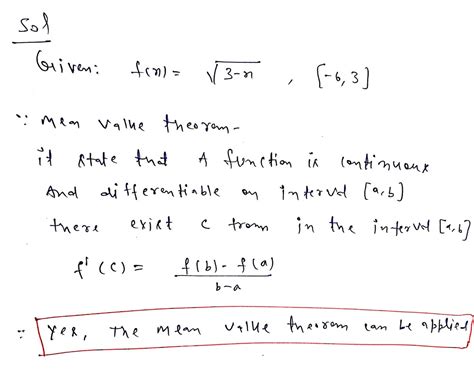 Sol
Given: f(n) = √3-n , [-6, 3]
∵ mean value theorem-
it state that A function is continuous
And differentiable on interval [a,b]
there exist c from in the interval [a,b]
f'(c) = f(b) - f(a) / b-a
∵ Yes, The mean value theorem can be applied